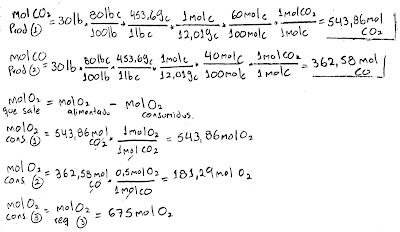 mol CO₂ Prod ① = 30lb * 80lb c/100lb * 453,69c/1lb c * 1molc/12,019c * 60molc/100molc * 1molCO₂/1molc = 543,86mol CO₂
mol CO Prod ② = 30lb * 80lbc/100lb * 453,69c/1lbc * 1molc/12,019c * 40molc/100molc * 1molCO₂/1molc = 362,58 mol CO
mol O₂ que sale = mol O₂ alimentado - mol O₂ consumidos.
mol O₂ cons. ① = 543,86 mol CO₂ * 1molO₂/1molCO₂ = 543,86 mol O₂
mol O₂ cons. ② = 362,58 mol CO * 0,5molO₂/1molCO = 181,29 mol O₂
mol O₂ cons. ③ = mol O₂ req ③ = 675 mol O₂